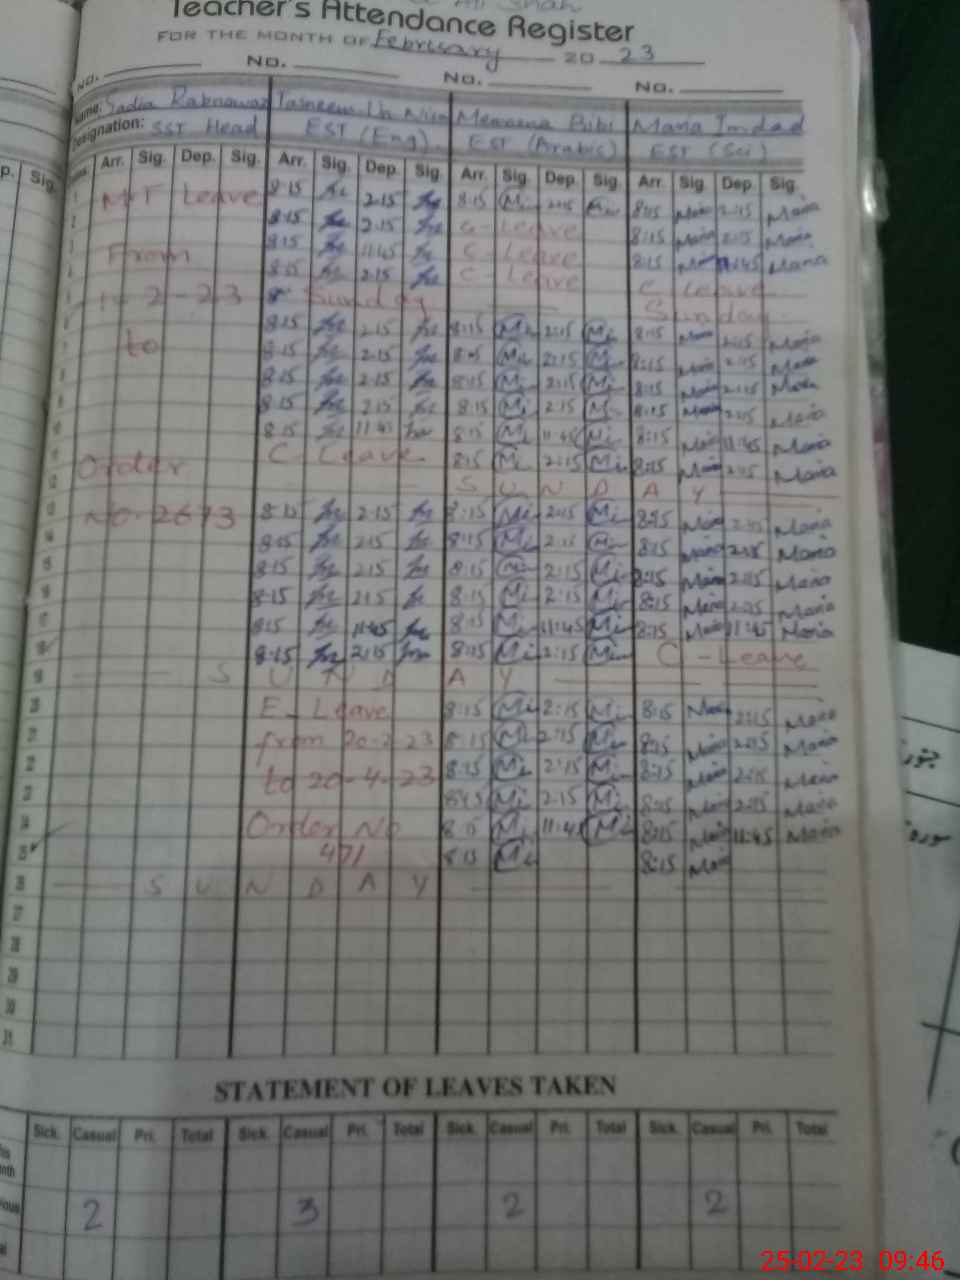 Teacher's Attendance Register
FOR THE MONTH OF February 20 23
No. No. No. No.
Name: Sadia Rabnawaz Tasneem Un Nisa Memoona Bibi Maria Imdad
Designation: SST Head EST (Eng). EST (Arabic) EST (Sci)
P. Sig. Arr. Sig. Dep. Sig. Arr. Sig. Dep. Sig. Arr. Sig. Dep. Sig. Arr. Sig. Dep. Sig.
1 Leave 8:15 2:15 8:15 Mi 2:15 Mi 8:15 Maria 2:15 Maria
2 8:15 2:15 C-Leave 8:15 Maria 2:15 Maria
3 From 8:15 11:45 C-Leave 8:15 Maria 11:45 Maria
4 8:15 2:15 C-Leave C-Leave
5 1-2-23 Sunday Sunday
6 8:15 2:15 8:15 Mi 2:15 Mi 8:15 Maria 2:15 Maria
7 to 8:15 2:15 8:15 Mi 2:15 Mi 8:15 Maria 2:15 Maria
8 8:15 2:15 8:15 Mi 2:15 Mi 8:15 Maria 2:15 Maria
9 8:15 2:15 8:15 Mi 2:15 Mi 8:15 Maria 2:15 Maria
10 8:15 11:45 8:15 Mi 11:45 Mi 8:15 Maria 11:45 Maria
11 Order C-Leave 8:15 Mi 2:15 Mi 8:15 Maria 2:15 Maria
12 S U N D A Y
13 No-2673 8:15 2:15 8:15 Mi 2:15 Mi 8:15 Maria 2:15 Maria
14 8:15 2:15 8:15 Mi 2:15 Mi 8:15 Maria 2:15 Maria
15 8:15 2:15 8:15 Mi 2:15 Mi 8:15 Maria 2:15 Maria
16 8:15 2:15 8:15 Mi 2:15 Mi 8:15 Maria 2:15 Maria
17 8:15 11:45 8:15 Mi 11:45 Mi 8:15 Maria 11:45 Maria
18 8:15 2:15 8:15 Mi 2:15 Mi C-Leave
19 S U N D A Y
20 E-Leave 8:15 Mi 2:15 Mi 8:15 Maria 2:15 Maria
21 from 20-2-23 8:15 Mi 2:15 Mi 8:15 Maria 2:15 Maria
22 to 20-4-23 8:15 Mi 2:15 Mi 8:15 Maria 2:15 Maria
23 8:15 Mi 2:15 Mi 8:15 Maria 2:15 Maria
24 Order No 8:15 Mi 11:45 Mi 8:15 Maria 11:45 Maria
25 471 8:15 Mi 8:15 Maria
26 S U N D A Y
27
28
29
30
31
STATEMENT OF LEAVES TAKEN
Sick. Casual Pri. Total Sick. Casual Pri. Total Sick. Casual Pri. Total Sick. Casual Pri. Total
2 3 2 2
25-02-23 09:46